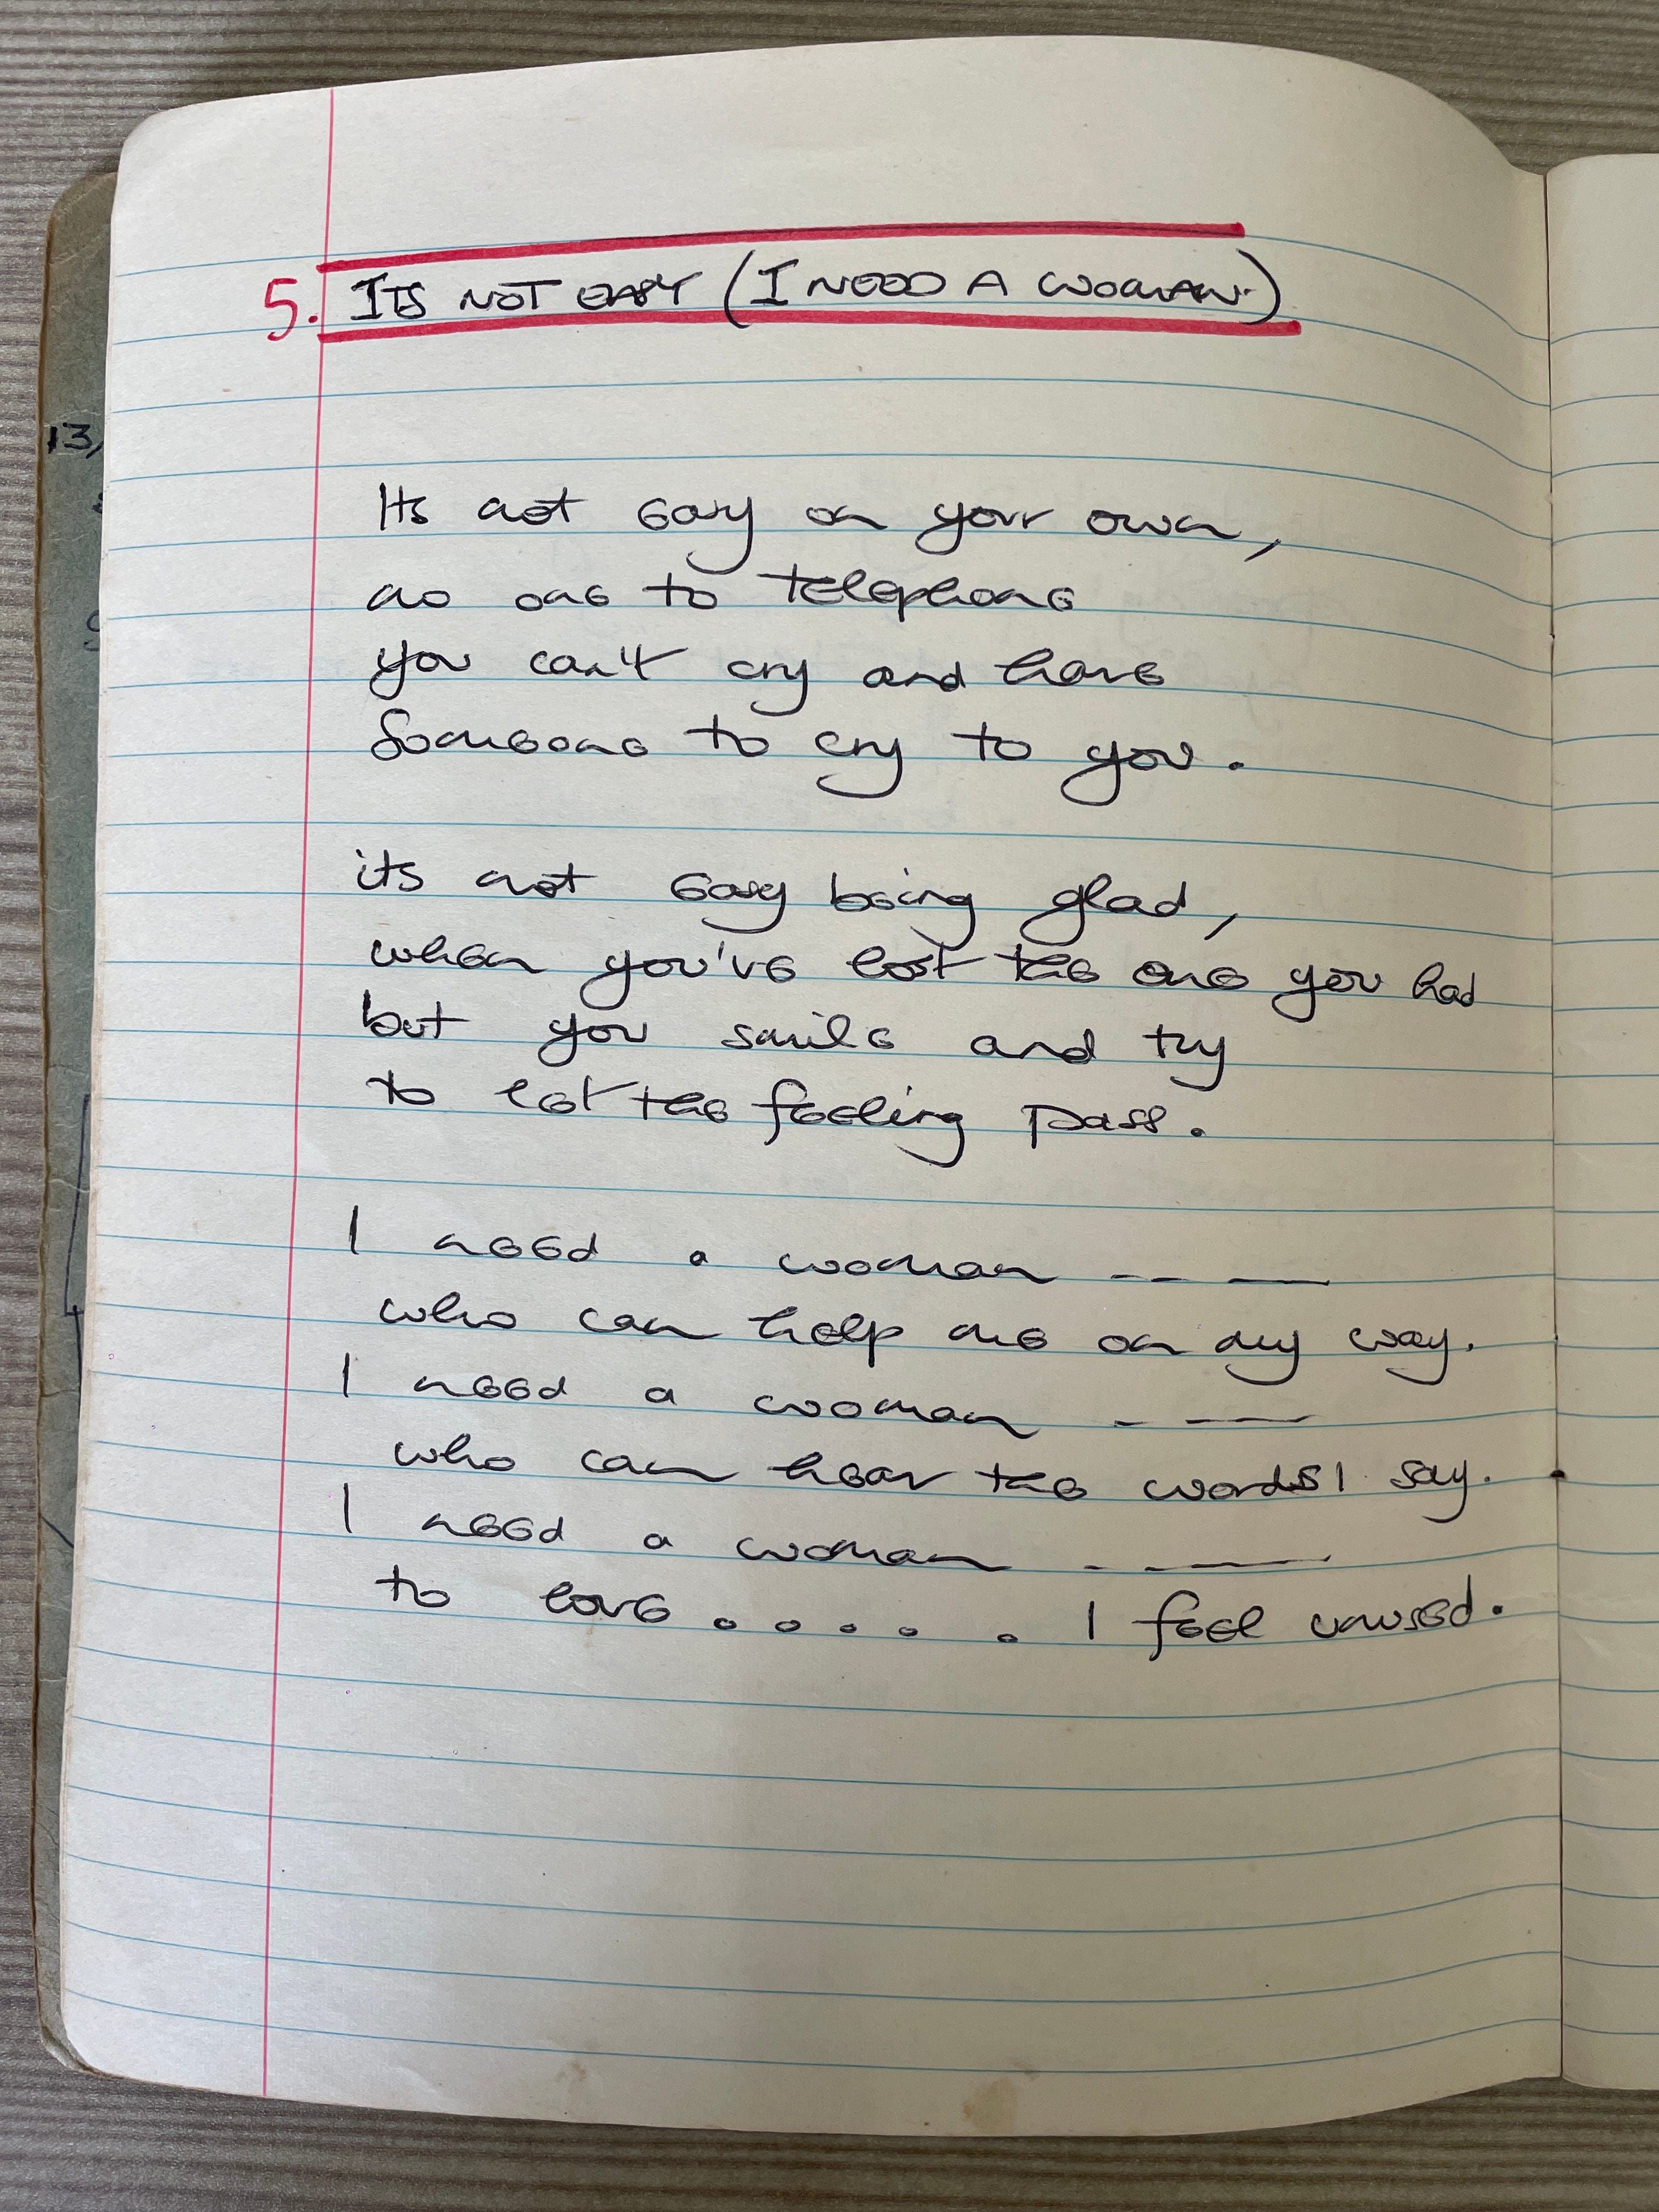 5. ITS NOT EASY (I NEED A WOMAN.)
Its not easy on your own,
no one to telephone
you can't cry and have
Someone to cry to you.
its not easy being glad,
when you've lost the one you had
but you smile and try
to let the feeling pass.
I need a woman -- —
who can help me on my way.
I need a woman - —
who can hear the words I say.
I need a woman - —
to love . . . . . I feel unused.
13,